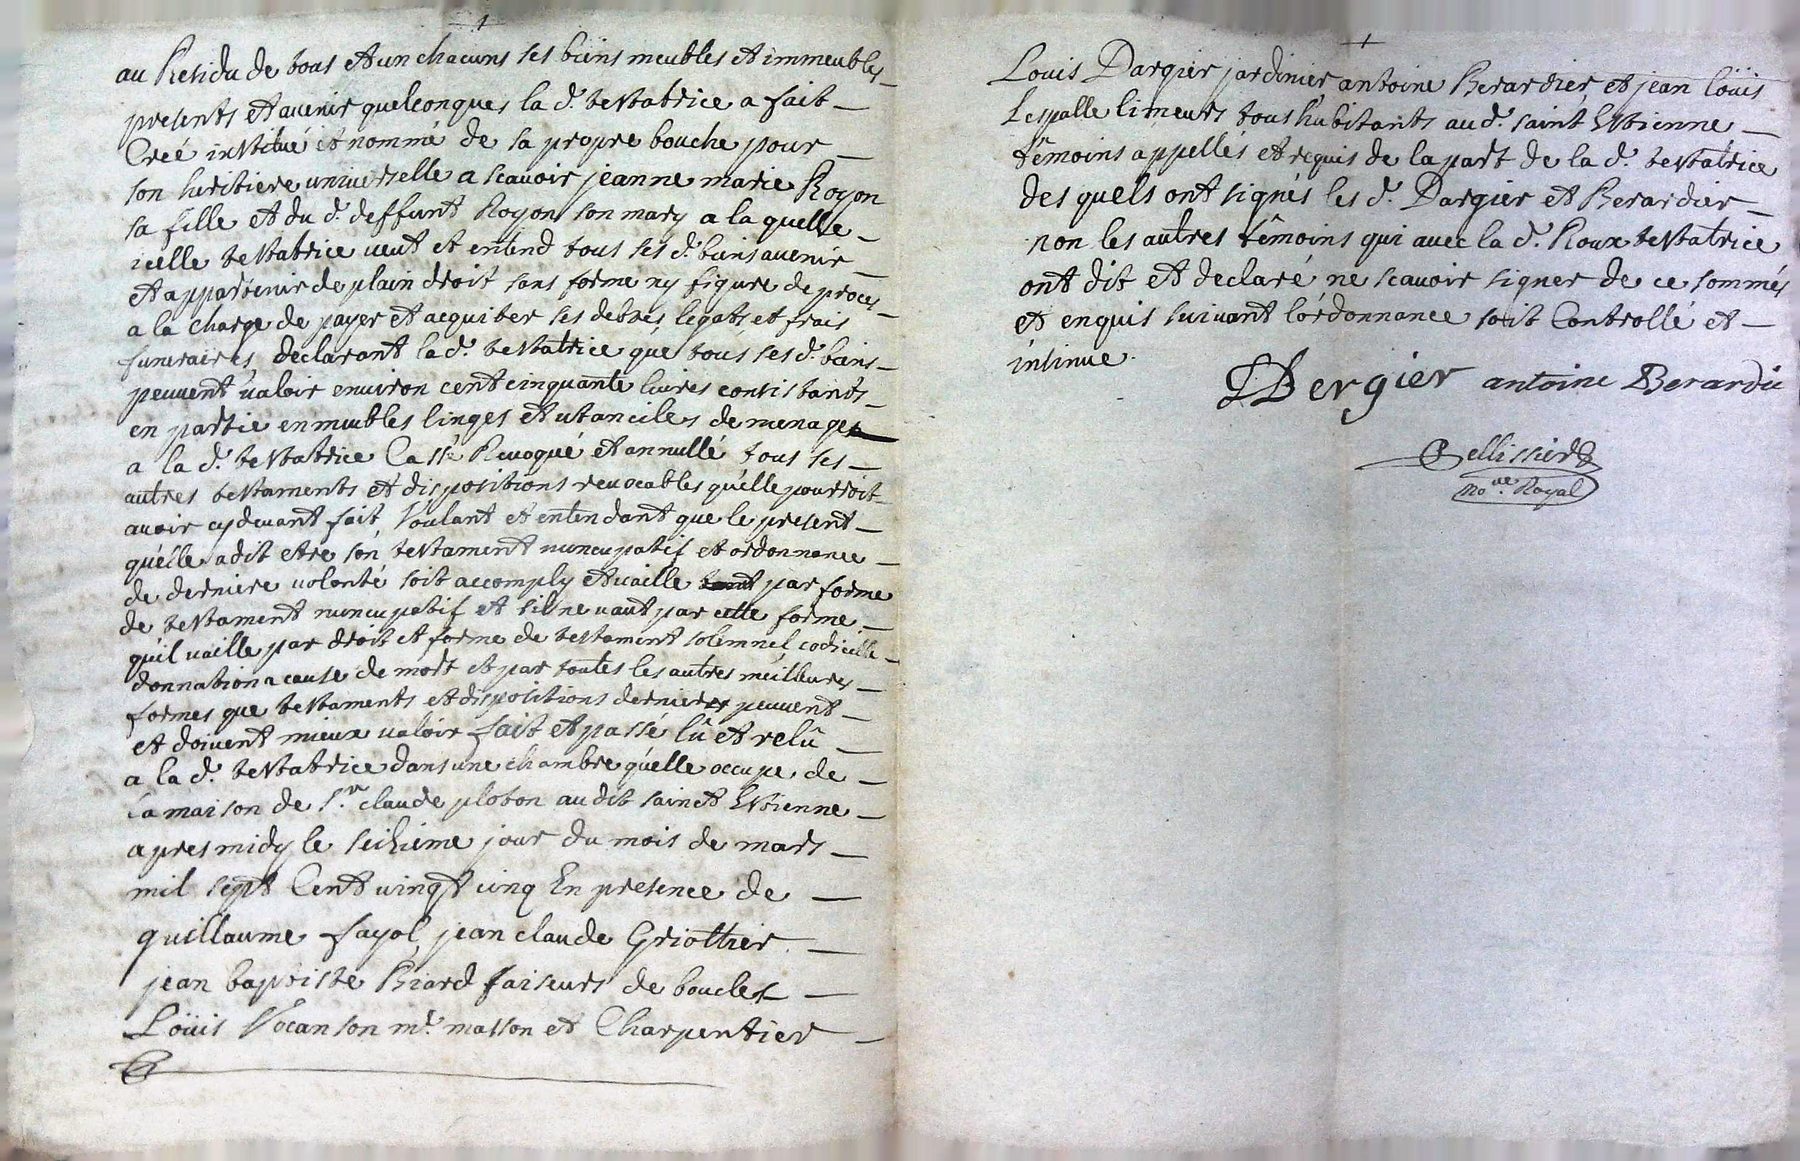 au Residu de tous et un chacuns ses biens meubles et immeubles
presents et avenir quelconques la d. testatrice a fait
Creé institué et nommé de sa propre bouche pour
son heritiere universelle a scavoir jeanne marie Royon
sa fille et du d. deffunt Royon son mary a la quelle
icelle testatrice veut et entend tous ses d. biens avenir
et appartenir de plain droit sans forme ny figure de proces
a la charge de payer et acquiter ses debtes legats et frais
funeraires, declarant la d. testatrice que tous ses d. biens
peuvent valoir environ cent cinquante livres consistants
en partie en meubles linges et utanciles de menage
a la d. testatrice Cassé Revoqué et annullé tous ses
autres testaments et dispositions revocables qu'elle pourroit
avoir cy devant fait voulant et entendant que le present
qu'elle a dit etre son testament nuncupatif et ordonnance
de derniere volonté soit accomply et vaille par forme
de testament nuncupatif et sil ne vaut par cette forme
qu'il vaille par droit et forme de testament solemnel codicille
donnation a cause de mort et par toutes les autres meilleures
formes que testaments et dispositions dernieres peuvent
et doivent mieux valoir fait et passé lû et relû
a la d. testatrice dans une chambre qu'elle occupe de
la maison de s.r claude ploton audit sainct Estienne
apres midy le seizieme jour du mois de mars
mil sept Cent vingt cinq En presence de
guillaume fayol, jean claude Griottier
jean baptiste Riard faiseurs de boucles
Loüis Vocanson m.e masson et Charpentier
Louis Dargier jardinier antoine Berardier et jean loüis
Lespalle limeurs tous habitants aud. saint Estienne
têmoins appellés et requis de la part de la d. testatrice
des quels ont signés les d. Dargier et Berardier
non les autres têmoins qui avec la d. Roux testatrice
ont dit et declaré ne scavoir signer de ce sommés
et enquis suivant l'ordonnance soit Controllé et
insinue.
Bergier antoine Berardie
Pellissier
No.re Royal